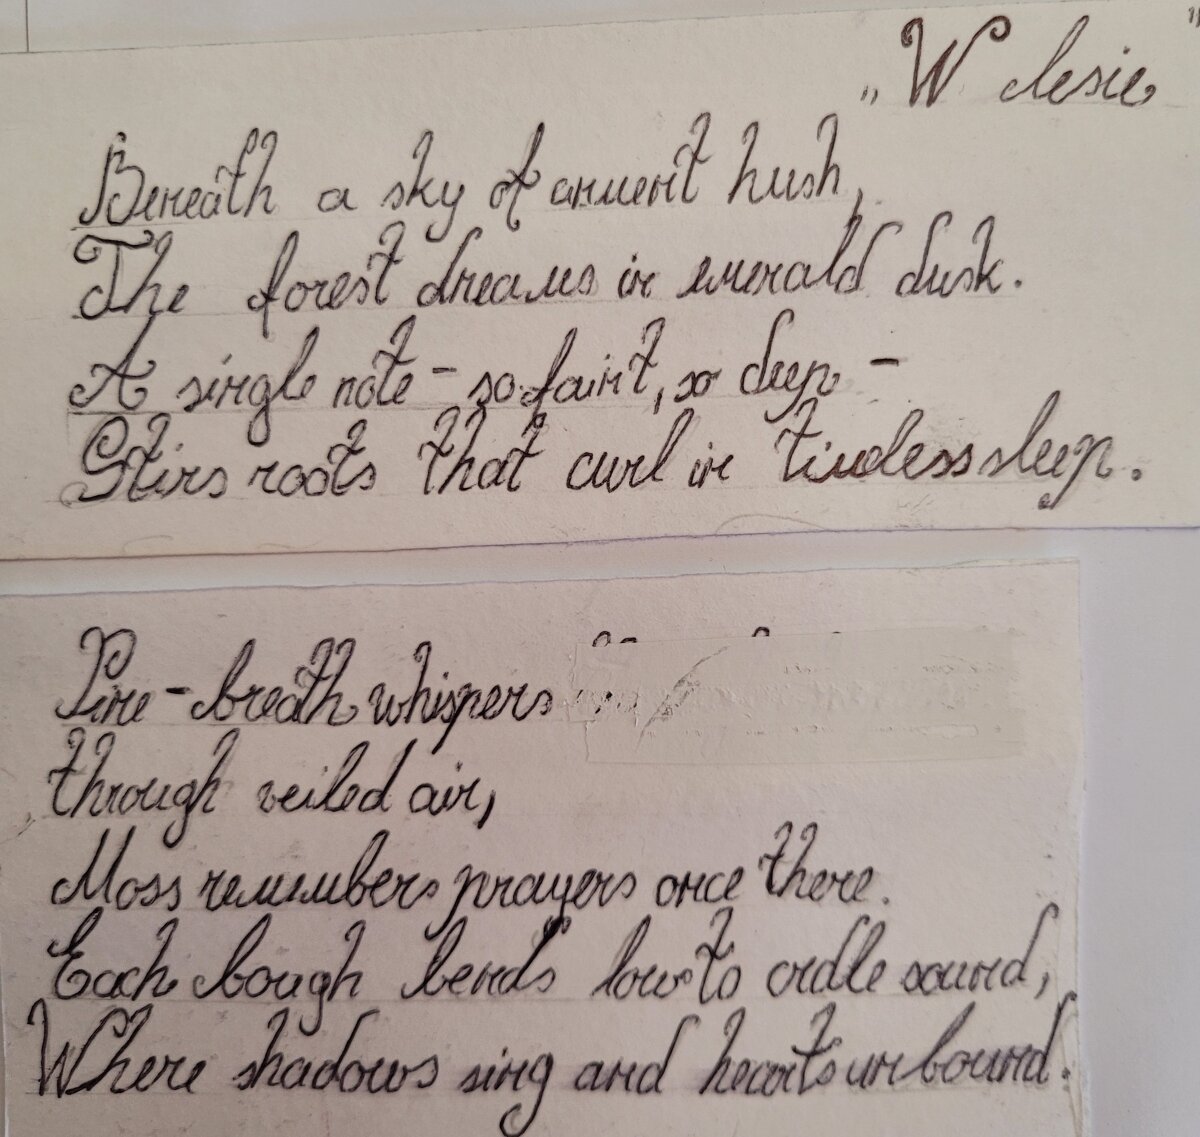 „W lesie”
Beneath a sky of ancient hush,
The forest dreams in emerald dusk.
A single note - so faint, so deep -
Stirs roots that curl in timeless sleep.
Pine-breath whispers
through veiled air,
Moss remembers prayers once there.
Each bough bends low to cradle sound,
Where shadows sing and hearts unbound.